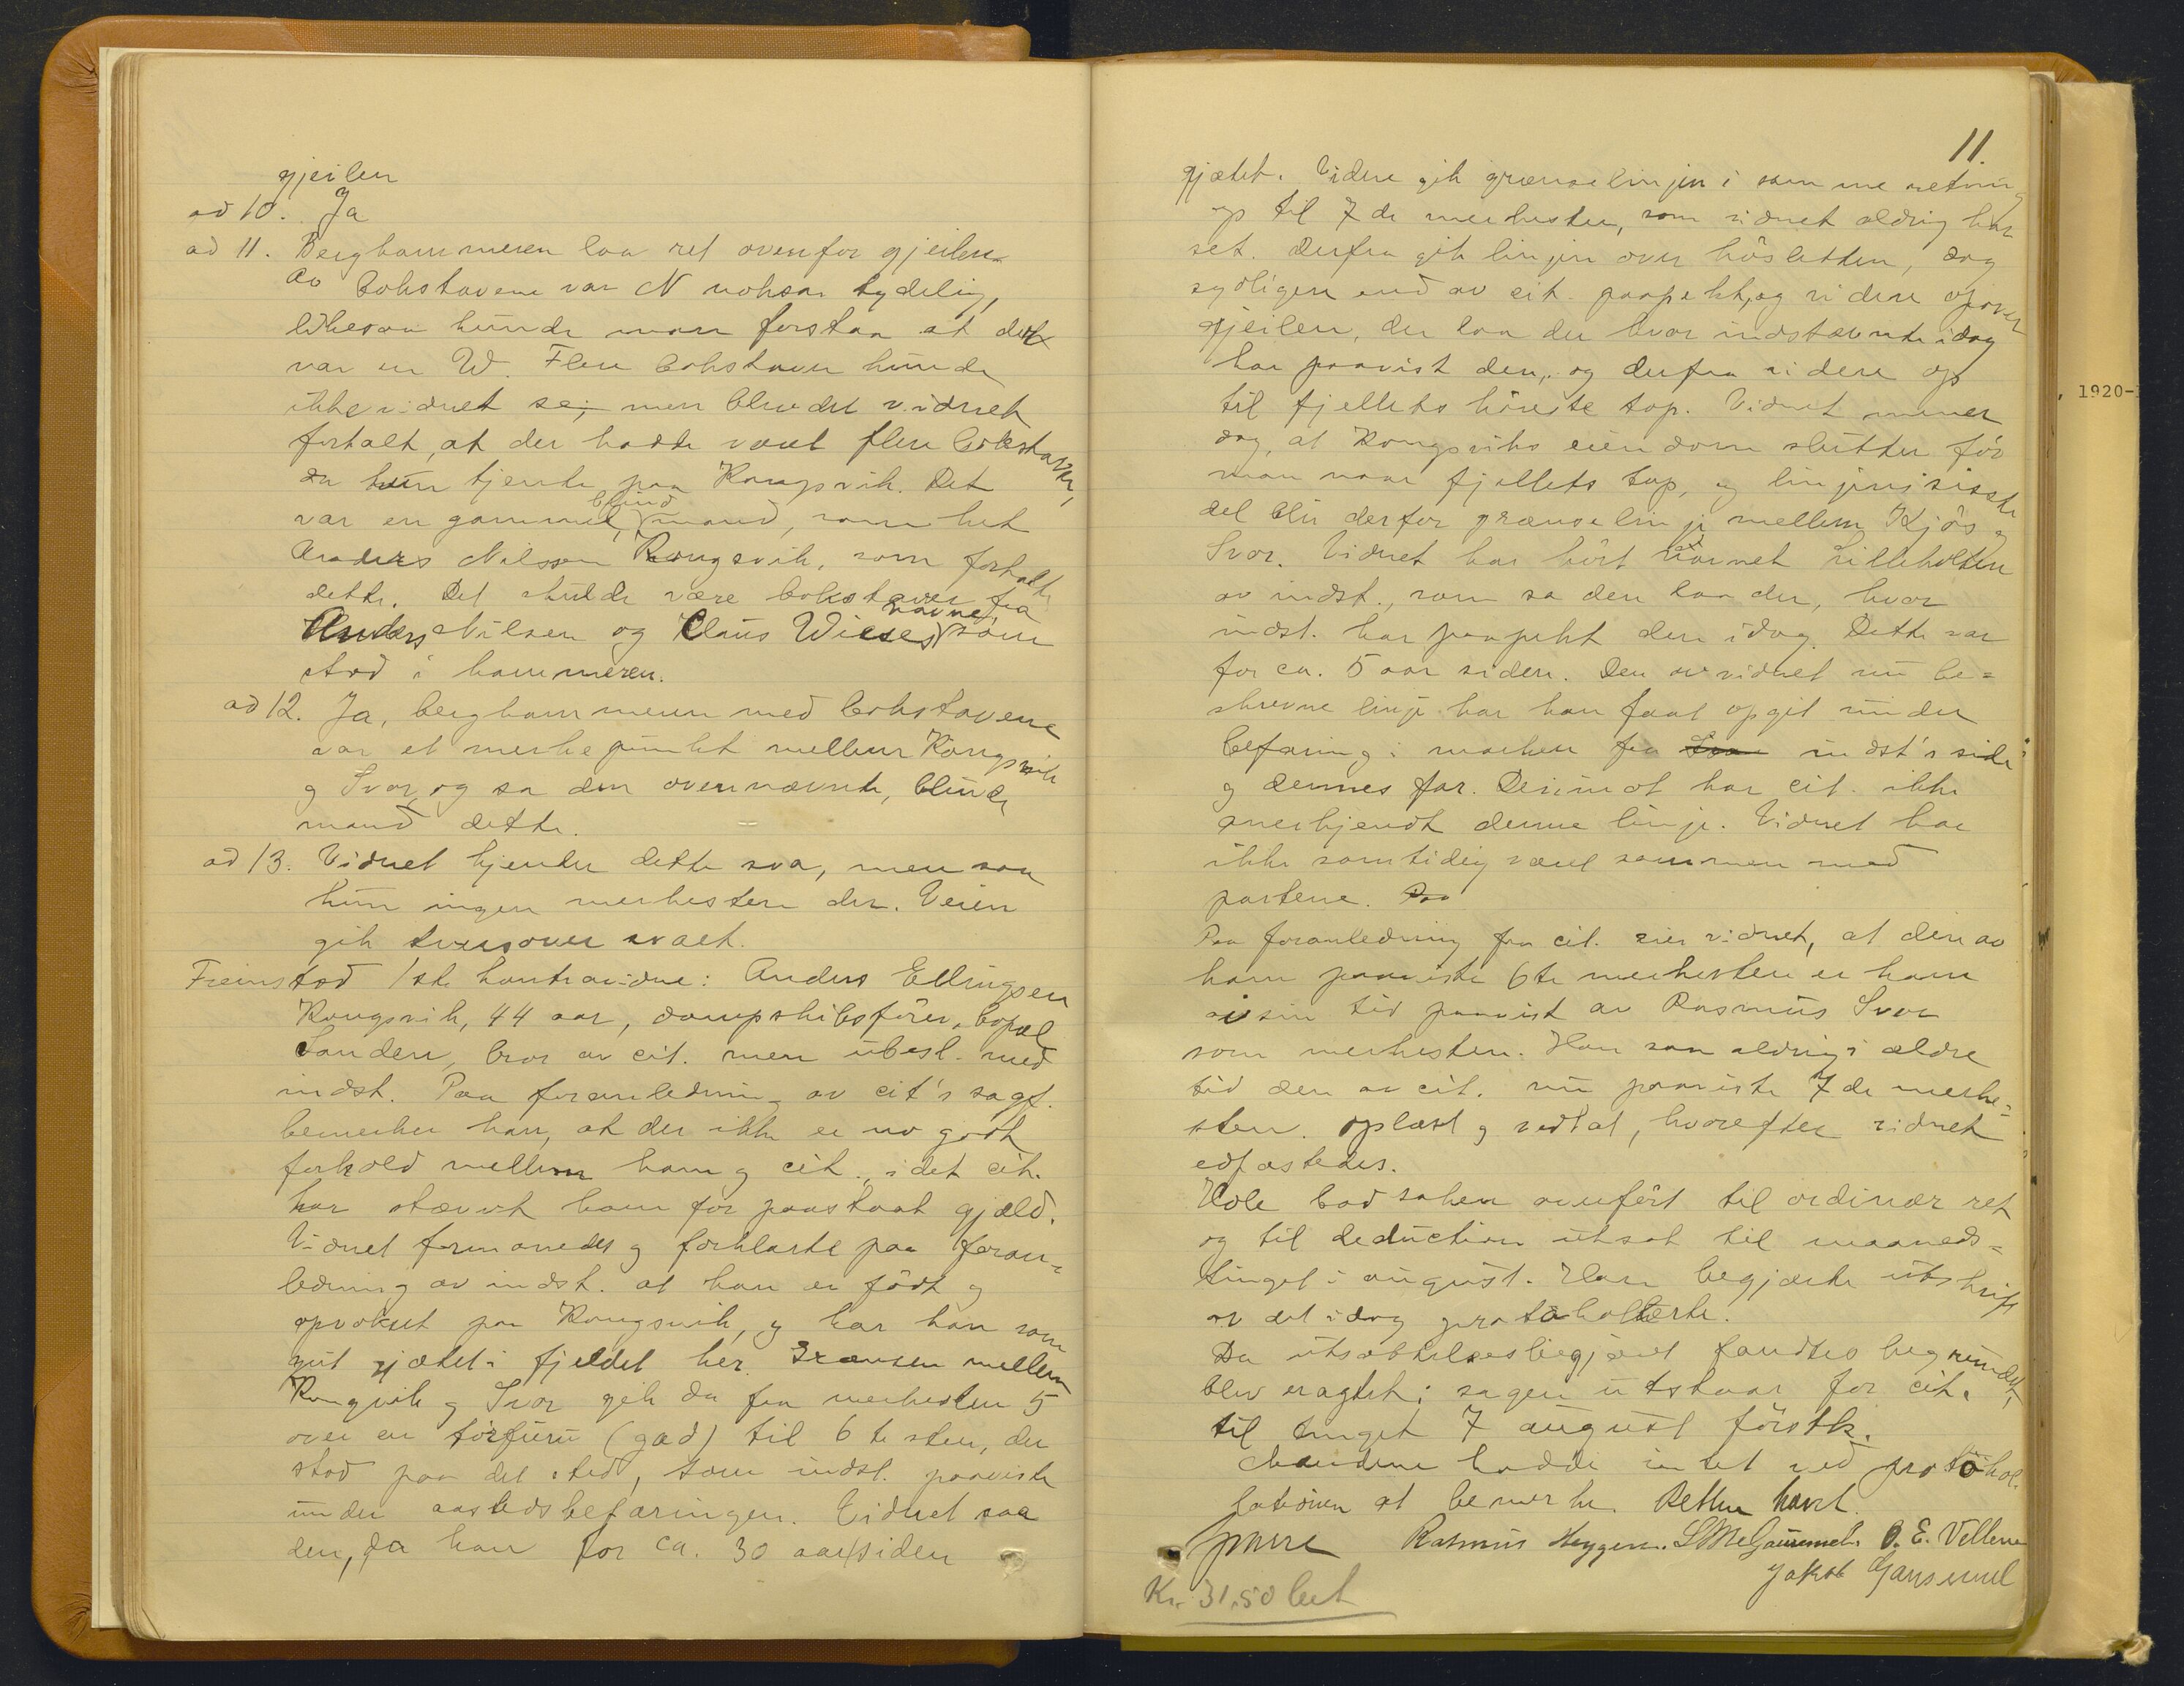 gjeilen
ad 10. Ja
ad 11. Berghammeren laa ret ovenfor gjeilen.
Av bokstavene var N noksaa tydelig,
likesaa kunde man forstaa at det
var en W. Flere bokstaver kunde
ikke vidnet se, men blev det vidnet
fortalt, at der hadde været flere bokstaver,
da hun tjente paa Kongsvik. Det
var en gammel, blind mand, som het
Anders Nilssen Kongsvik, som fortalte
dette. Det skulde være bokstaver fra
Anders Nilsen og Claus Wieses navne, som
stod i hammeren.
ad 12. Ja, berghammeren med bokstavene
var et merkepunkt mellem Kongsvik
og Svor, og sa den ovennævnte, blinde
mand dette.
ad 13. Vidnet kjender dette sva, men saa
hun ingen merkesten der. Veien
gik tversover svaet.
Fremstod 1ste kontravidne: Anders Ellingsen
Kongsvik, 44 aar, dampskibsfører, bopæl
Sanden, bror av cit. men ubesl. med
indst. Paa foranledning av cit's sagf.
bemerker han, at der ikke er no godt
forhold mellem ham og cit., idet cit.
har stævnt ham for paastaat gjæld.
Vidnet formanedes og forklarte paa foran-
ledning av indst. at han er født og
opvokset paa Kongsvik, og har han som
gut gjætet i fjeldet her. Grænsen mellem
Kongsvik og Svor gik da fra merkesten 5
over en tørfuru (gad) til 6te sten, der
stod paa det sted, som indst. paaviste
under aastedsbefaringen. Vidnet saa
den, da han for ca. 30 aar siden
11.
gjætet. Videre gik grænselinjen i samme retning
op til 7de merkesten, som vidnet aldrig har
set. Derfra gik linjen over høsletten, dog
sydligere end av cit. paapekt, og videre opover
gjeilen, der laa der hvor indstævnte idag
har paavist den, og derfra videre op
til fjellets høieste top. Vidnet mener
dog, at Kongsviks eiendom slutter før
man naar fjellets top, og linjens sisste
del blir derfor grænselinje mellem Kjøs og
Svor. Vidnet har hørt navnet Lilleholten
av indst., som sa den laa der, hvor
indst. har paapekt den idag. Dette var
for ca. 5 aar siden. Den av vidnet nu be-
skrevne linje har han faat opgit under
befaring i marken fra Svor indst's side
og dennes far. Derimot har cit. ikke
anerkjendt denne linje. Vidnet har
ikke samtidig været sammen med
partene. Paa
Paa foranledning fra cit. sier vidnet, at den av
ham paaviste 6te merkesten er ham
i sin tid paavist av Rasmus Svor
som merkesten. Han saa aldrig i ældre
tid den av cit. nu paaviste 7de merke-
sten. Oplæst og vedtat, hvorefter vidnet
edfæstedes.
Hole bad saken overført til ordinær ret
og til deduction utsat til maaneds-
tinget i august. Han begjærte utskrift
av det idag protokollerte.
Da utsættelsesbegjæret fandtes begrundet,
blev eragtet: sagen utstaar for cit.
til tinget 7 august førstk.
Mændene hadde intet ved protokol-
lationen at bemerke. Retten hævet.
Rasmus Heggem. O. E. Vellene
Jakob Garsemel
Kr. 31,50 bet